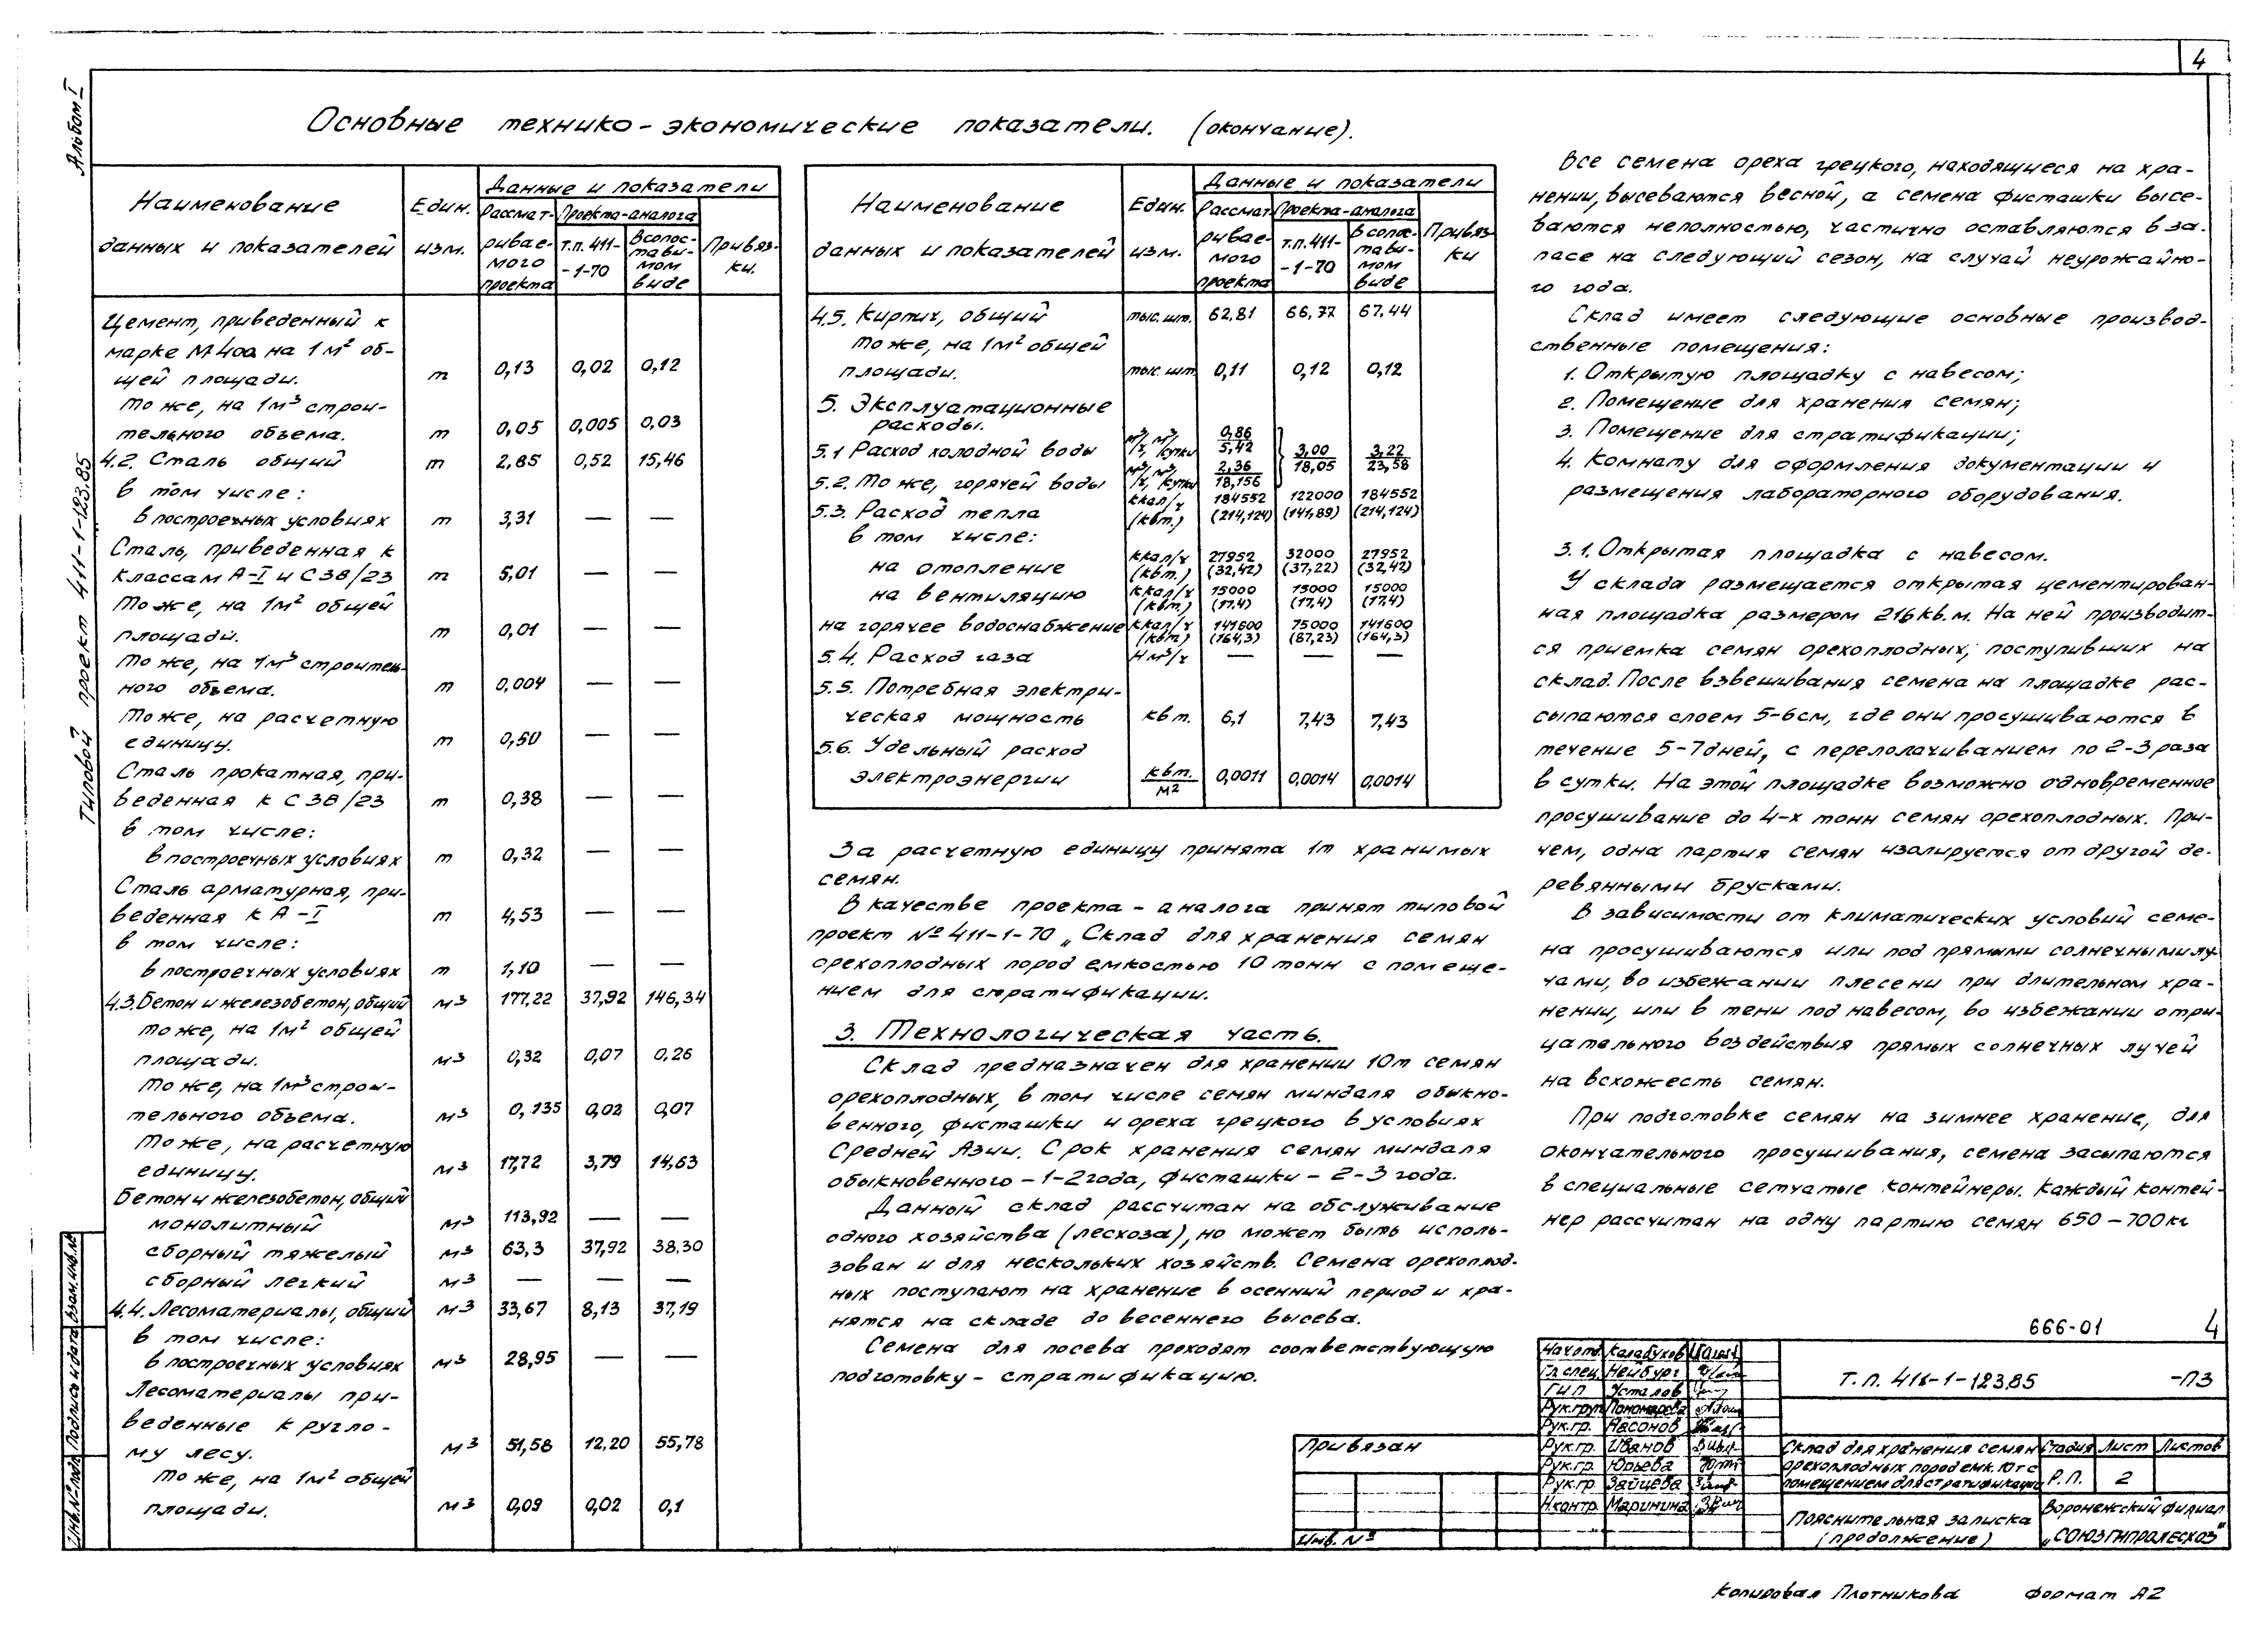 4
Альбом I
Типовой проект 411-1-123.85
Основные технико-экономические показатели. (окончание).
Наименование данных и показателей | Един. изм. | Данные и показатели
Рассматриваемого проекта | Проекта-аналога | Привязки.
т.п. 411-1-70 | В сопоставимом виде
Цемент, приведенный к
марке М400 на 1м² об-
щей площади. т 0,13 0,02 0,12
то же, на 1м³ строи-
тельного объема. т 0,05 0,005 0,03
4.2. Сталь общий т 2,85 0,52 15,46
в том числе:
в построечных условиях т 3,31 — —
Сталь, приведенная к
классам А-I и С38/23 т 5,01 — —
то же, на 1м² общей
площади. т 0,01 — —
то же, на 1м³ строитель-
ного объема. т 0,004 — —
то же, на расчетную
единицу. т 0,50 — —
Сталь прокатная, при-
веденная к С38/23 т 0,38 — —
в том числе:
в построечных условиях т 0,32 — —
Сталь арматурная, при-
веденная к А-I т 4,53 — —
в том числе:
в построечных условиях т 1,10 — —
4.3. Бетон и железобетон, общий м3 177,22 37,92 146,34
то же, на 1м² общей
площади. м3 0,32 0,07 0,26
то же, на 1м³ строи-
тельного объема. м3 0,135 0,02 0,07
то же, на расчетную
единицу. м3 17,72 3,79 14,63
Бетон и железобетон, общий
монолитный м3 113,92 — —
сборный тяжелый м3 63,3 37,92 38,30
сборный легкий м3 — — —
4.4. Лесоматериалы, общий м3 33,67 8,13 37,19
в том числе:
в построечных условиях м3 28,95 — —
Лесоматериалы при-
веденные к кругло-
му лесу. м3 51,58 12,20 55,78
то же, на 1м² общей
площади. м3 0,09 0,02 0,1
Наименование данных и показателей | Един. изм. | Данные и показатели
Рассматриваемого проекта | Проекта-аналога | Привязки
т.п. 411-1-70 | В сопоставимом виде
4.5. Кирпич, общий тыс. шт. 62,81 66,77 67,44
то же, на 1м² общей
площади. тыс. шт 0,11 0,12 0,12
5. Эксплуатационные
расходы.
5.1 Расход холодной воды м³/ч, м³/сутки 0,86/5,42
3,00/18,05 3,22/23,58
5.2. То же, горячей воды м³/ч, м³/сутки 2,36/18,156
5.3. Расход тепла ккал/ч (квт.) 184552 (214,124) 122000 (141,89) 184552 (214,124)
в том числе:
на отопление ккал/ч (квт.) 27952 (32,42) 32000 (37,22) 27952 (32,42)
на вентиляцию ккал/ч (квт.) 15000 (17,4) 15000 (17,4) 15000 (17,4)
на горячее водоснабжение ккал/ч (квт) 141600 (164,3) 75000 (87,23) 141600 (164,3)
5.4. Расход газа Нм³/ч — — —
5.5. Потребная электри-
ческая мощность квт. 6,1 7,43 7,43
5.6. Удельный расход
электроэнергии квт./м2 0,0011 0,0014 0,0014
За расчетную единицу принята 1т хранимых
семян.
В качестве проекта-аналога принят типовой
проект № 411-1-70 „Склад для хранения семян
орехоплодных пород емкостью 10 тонн с помеще-
нием для стратификации.
3. Технологическая часть.
Склад предназначен для хранении 10т семян
орехоплодных, в том числе семян миндаля обыкно-
венного, фисташки и ореха грецкого в условиях
Средней Азии. Срок хранения семян миндаля
обыкновенного - 1-2 года, фисташки - 2-3 года.
Данный склад рассчитан на обслуживание
одного хозяйства (лесхоза), но может быть исполь-
зован и для нескольких хозяйств. Семена орехоплод-
ных поступают на хранение в осенний период и хра-
нятся на складе до весеннего высева.
Семена для посева проходят соответствующую
подготовку - стратификацию.
Все семена ореха грецкого, находящиеся на хра-
нении, высеваются весной, а семена фисташки высе-
ваются неполностью, частично оставляются в за-
пасе на следующий сезон, на случай неурожайно-
го года.
Склад имеет следующие основные производ-
ственные помещения:
1. Открытую площадку с навесом;
2. Помещение для хранения семян;
3. Помещение для стратификации;
4. Комнату для оформления документации и
размещения лабораторного оборудования.
3.1. Открытая площадка с навесом.
У склада размещается открытая цементирован-
ная площадка размером 216 кв.м. На ней производит-
ся приемка семян орехоплодных, поступивших на
склад. После взвешивания семена на площадке рас-
сыпаются слоем 5-6см, где они просушиваются в
течение 5-7 дней, с перелопачиванием по 2-3 раза
в сутки. На этой площадке возможно одновременное
просушивание до 4-х тонн семян орехоплодных. При-
чем, одна партия семян изолируется от другой де-
ревянными брусками.
В зависимости от климатических условий семе-
на просушиваются или под прямыми солнечными лу-
чами, во избежании плесени при длительном хра-
нении, или в тени под навесом, во избежании отри-
цательного воздействия прямых солнечных лучей
на всхожесть семян.
При подготовке семян на зимнее хранение, для
окончательного просушивания, семена засыпаются
в специальные сетчатые контейнеры. Каждый контей-
нер рассчитан на одну партию семян 650-700кг
666-01 4
Нач.отд. Калабухов
Гл.спец. Нейбург
ГИП Усталов
Рук.груп. Пономарева
Рук.гр. Насонов
Рук.гр. Иванов
Рук.гр. Юрьева
Рук.гр. Зайцева
Н.контр. Маринина
Т.п. 411-1-123.85 -ПЗ
Склад для хранения семян
орехоплодных пород емк. 10т с
помещением для стратификации
Стадия Лист Листов
Р.П. 2
Пояснительная записка
(продолжение)
Воронежский филиал
„СОЮЗГИПРОЛЕСХОЗ"
Привязан
Инв. №
Взам.инв.№
Подпись и дата
Инв.№ подл.
Копировал Плотникова Формат А2